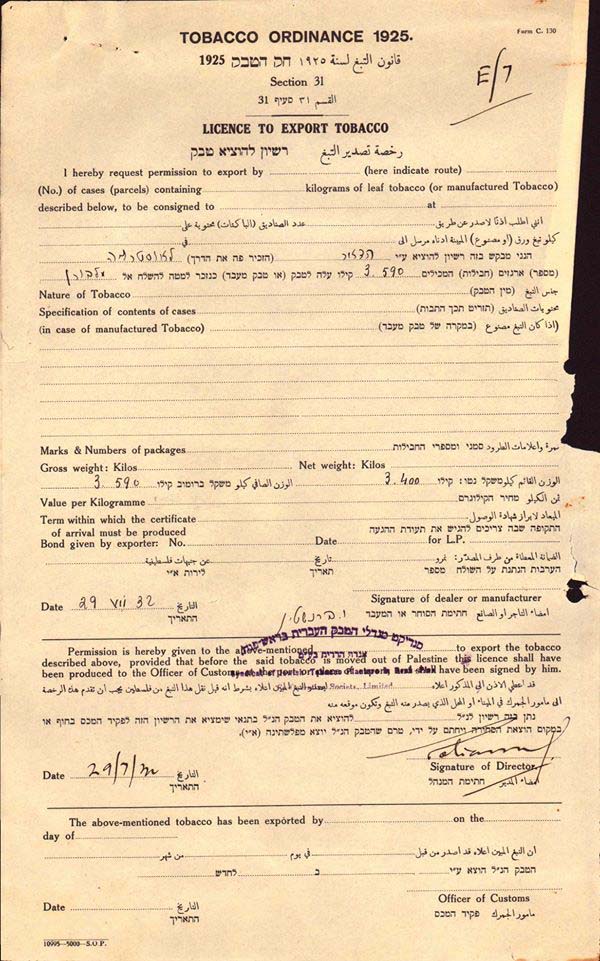 Form C. 130
TOBACCO ORDINANCE 1925.
قانون التبغ لسنة ١٩٢٥ חק הטבק 1925
E/7
Section 31
القسم ٣١ סעיף 31
LICENCE TO EXPORT TOBACCO
رخصة تصدير التبغ רשיון להוציא טבק
I hereby request permission to export by (here indicate route)
(No.) of cases (parcels) containing kilograms of leaf tobacco (or manufactured Tobacco)
described below, to be consigned to at
انني اطلب اذنًا لاصدر عن طريق عدد الصناديق (الباكتات) محتوية على
كيلو تبغ ورق (او مصنوع) المبينة ادناه مرسل الى في
הנני מבקש בזה רשיון להוציא ע״י הדאר (הזכיר פה את הדרך) לאוסטרליה
(מספר) ארגזים (חבילות) המכילים 3.590 קילו עלה לטבק (או טבק מעבד) כנזכר למטה להשלח אל מלבורן
Nature of Tobacco جنس التبغ (מין הטבק)
Specification of contents of cases محتويات الصناديق (תורים תכך התבות)
(in case of manufactured Tobacco) (اذا كان التبغ مصنوع) (במקרה של טבק מעבד)
Marks & Numbers of packages نمرة واعلامات الطرود סמני ומספרי החבילות
Gross weight: Kilos Net weight: Kilos
3.590 الوزن الصافي كيلو משקל ברוטוב קילו 3.400 الوزن القائم كيلو משקל נטו: קילו
Value per Kilogramme ثمن الكيلو מחיר הקילוגרם
Term within which the certificate الميعاد لابراز شهادة الوصول
of arrival must be produced התקופה שבה צריכים להגיש את תעודת ההגעה
Bond given by exporter: No. Date for L.P.
الضمانة المعطاة من طرف المصدر: نمرو تاريخ عن جنيهات فلسطينية
הערבות הנתנת על השולח מספר תאריך לירות א״י
Date 29 VII 32 التاريخ התאריך
Signature of dealer or manufacturer
امضاء التاجر او الصانع חתימת הסוחר או המעבד
סנדיקט מגדלי הטבק העברית בראש־פנה
אגודה הדדית בע״מ
Permission is hereby given to the above-mentioned to export the tobacco
described above, provided that before the said tobacco is moved out of Palestine this licence shall have
been produced to the Officer of Customs at the port and have been signed by him.
Society, Limited
قد اعطي الاذن الى المذكور اعلاه بشرط انه قبل نقل هذا التبغ من فلسطين يجب ان تقدم هذه الرخصة
الى مأمور الجمرك في الميناء او المحل الذي يصدر منه التبغ وتكون موقعه منه
נתן בזה רשיון לנ״ל להוציא את הטבק הנ״ל בתנאי שימציא את הרשיון הזה לפקיד המכס בחוף או
במקום הוצאת הסחורה ויחתם על ידי, טרם שהטבק הנ״ל יוצא מפלשתינה (א״י).
Date 29/7/32 التاريخ התאריך
Signature of Director
امضاء المدير חתימת המנהל
The above-mentioned tobacco has been exported by on the
day of
ان التبغ المبين اعلاه قد اصدر من قبل في يوم من شهر
הטבק הנ״ל הוצא ע״י ב לחדש
Date التاريخ התאריך
Officer of Customs
مأمور الجمرك פקיד המכס
10995—5000—S.O.P.